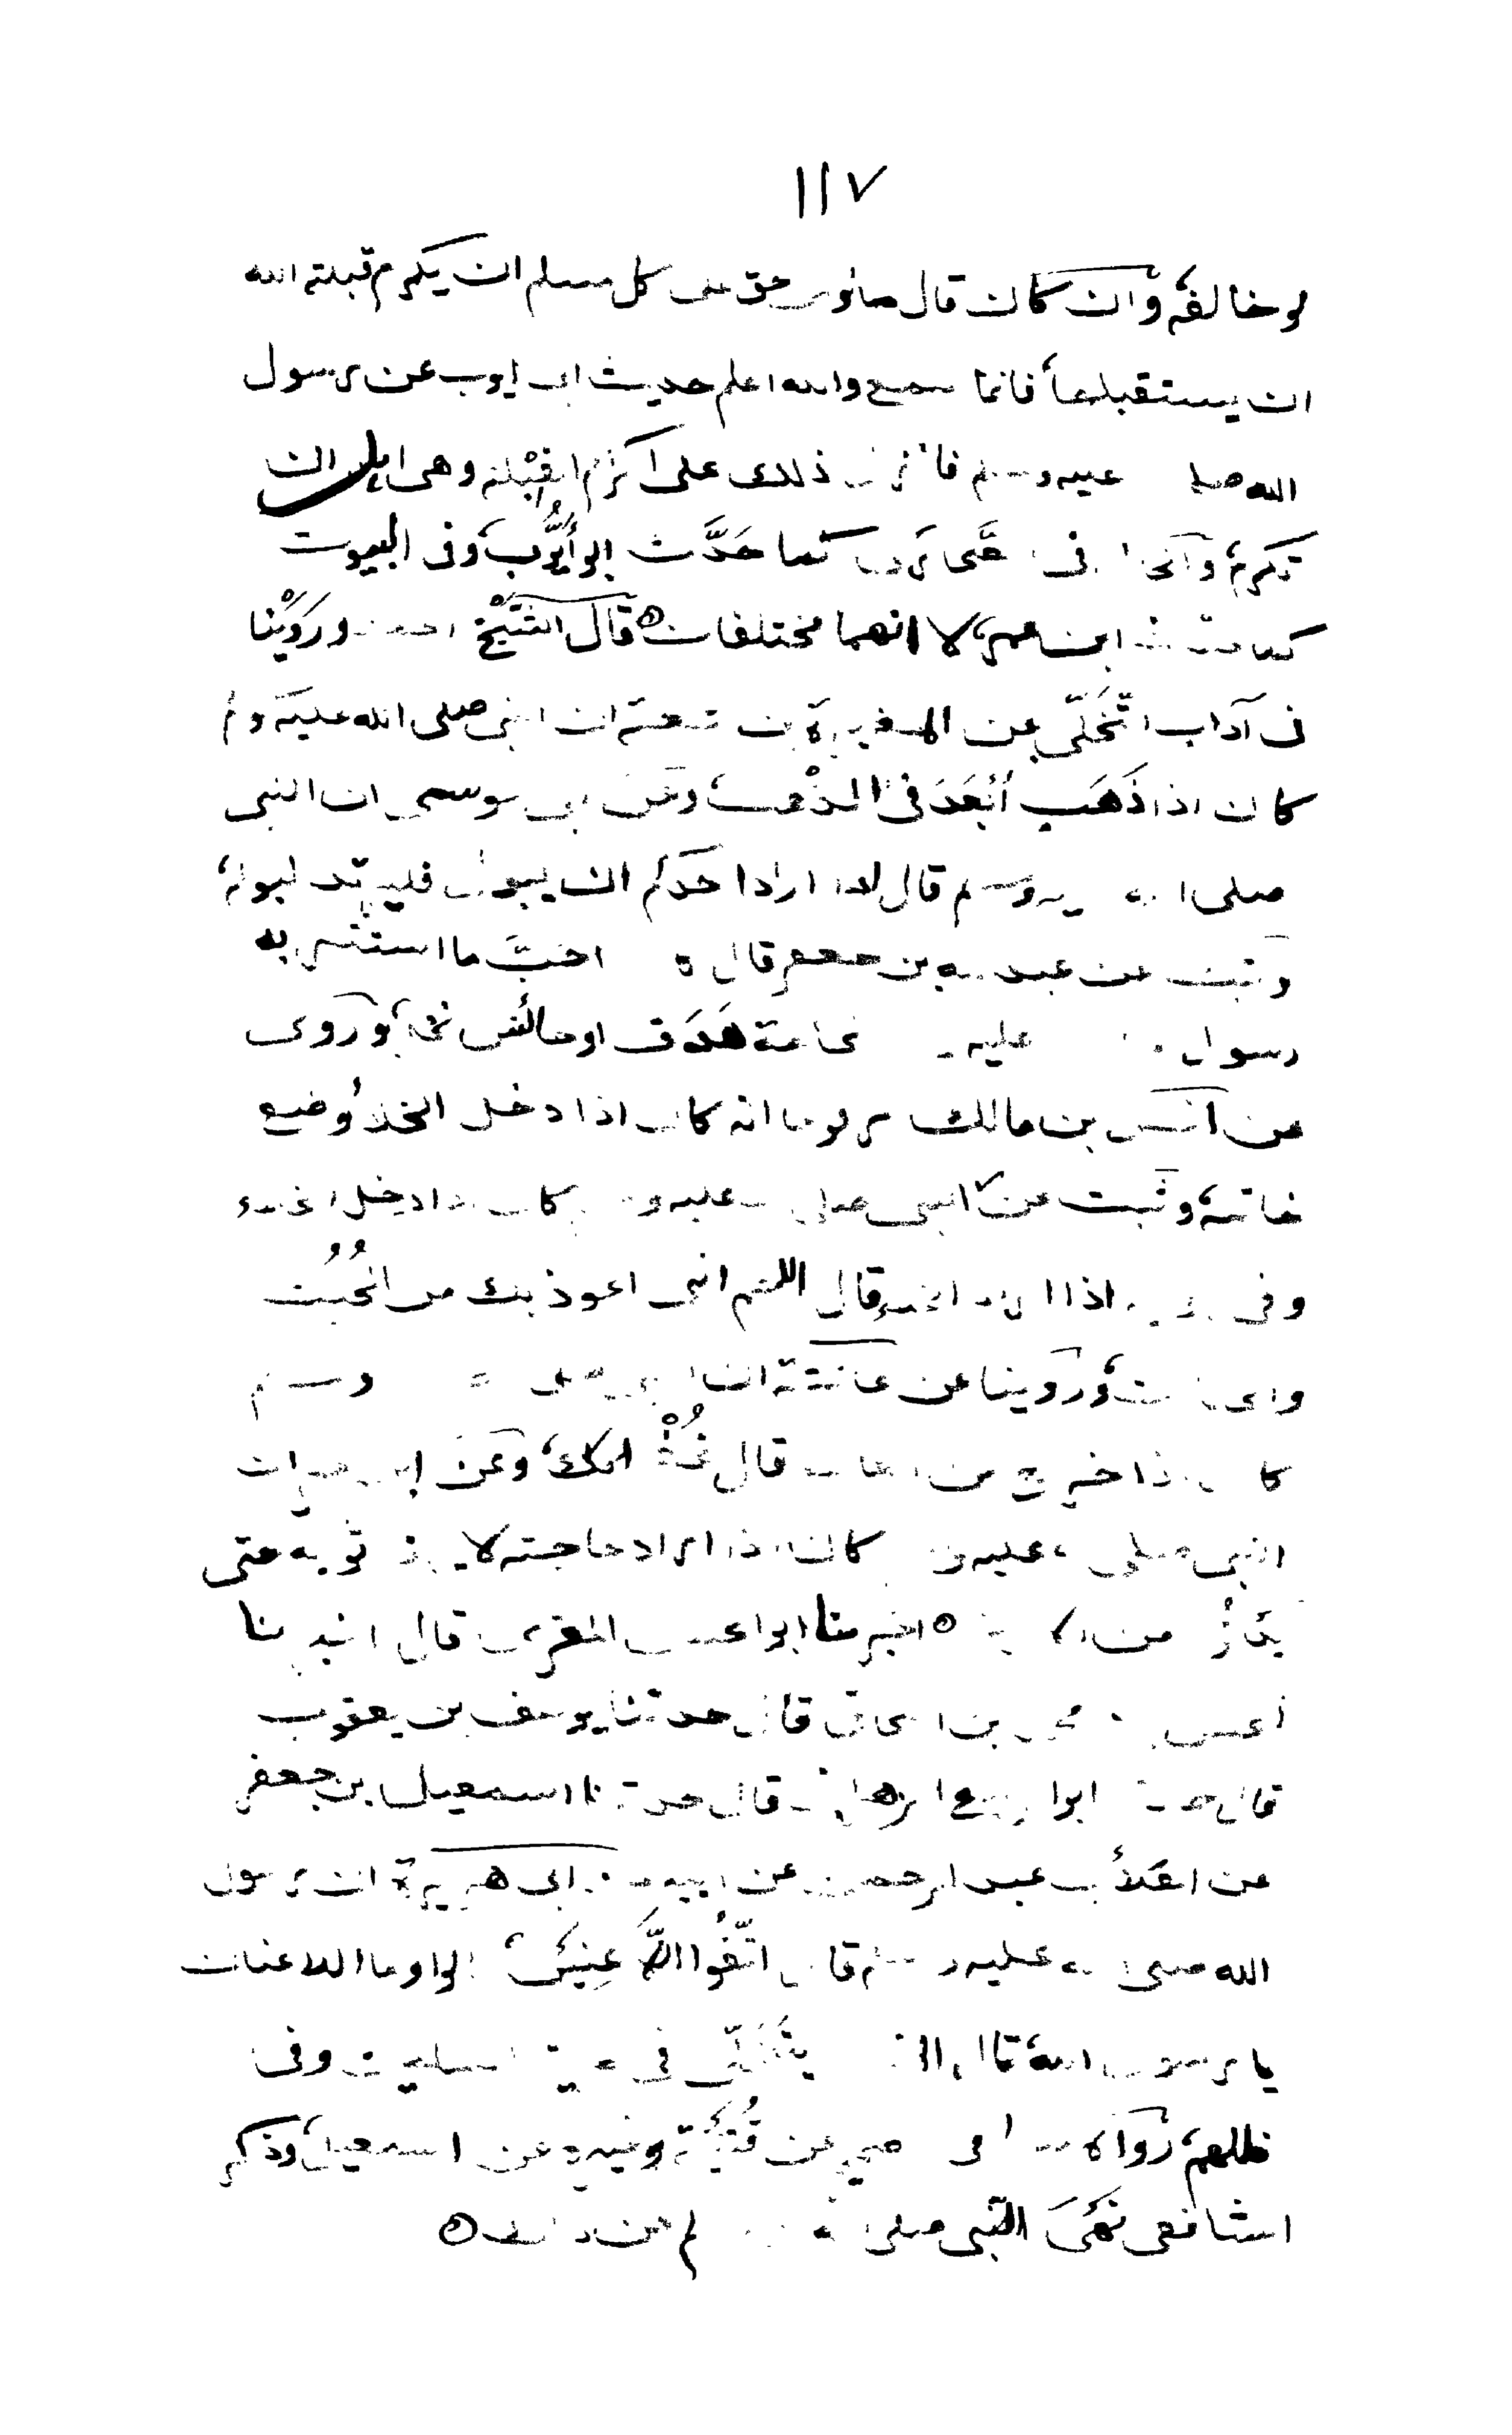 ١١٧
لو خالفه وان كان قال طاوس حق على كل مسلم ان يكرم قبلة الله
ان يستقبلها فانما سمع والله اعلم حديث ابى ايوب عن رسول
الله صلى عليه وسلم فانزل ذلك على اكرام القبلة وهى اهل ان
تكرم والحال فى كما حدث ابو أيوب وفى البيوت
كما حدث ابن عمر لا انهما مختلفان قال الشيخ احمد وروينا
فى آداب التخلى عن المغيرة بن شعبة ان النبى صلى الله عليه وسلم
كان اذا ذهب أبعد فى المذهب وعن ابى موسى ان النبى
صلى الله عليه وسلم قال اذا اراد احدكم ان يبول فليرتد لبوله
وثبت عن عبد الله بن جعفر قال احب ما استتر به
رسول عليه لحاجته هدف او حائش نخل وروى
عن انس بن مالك مرفوعا انه كان اذا دخل الخلاء وضع
خاتمه وثبت عن النبى صلى عليه و كان اذا دخل الخلاء
وفى رواية اذا اراد الخلاء قال اللهم انى اعوذ بك من الخبث
والخبائث وروينا عن عائشة ان النبى صلى وسلم
كان اذا خرج من الغائط قال غفرانك وعن ابن عمر ان
النبى صلى عليه و كان اذا اراد حاجته لا يرفع ثوبه حتى
من الارض اخبرنا ابو الحسن المقرى قال اخبرنا
الحسن بن محمد بن اسحاق قال حدثنا يوسف بن يعقوب
قال حدثنا ابو الربيع الزهرانى قال حدثنا اسمعيل بن جعفر
عن العلاء بن عبد الرحمن عن ابيه عن ابى هريرة ان رسول
الله صلى الله عليه وسلم قال اتقوا اللاعنين قالوا وما اللاعنان
يا رسول الله قال الذى يتخلى فى طريق المسلمين وفى
ظلهم رواه مسلم فى الصحيح عن قتيبة وغيره عن اسمعيل وذكر
الشافعى نهى النبى صلى وسلم عن ذلك